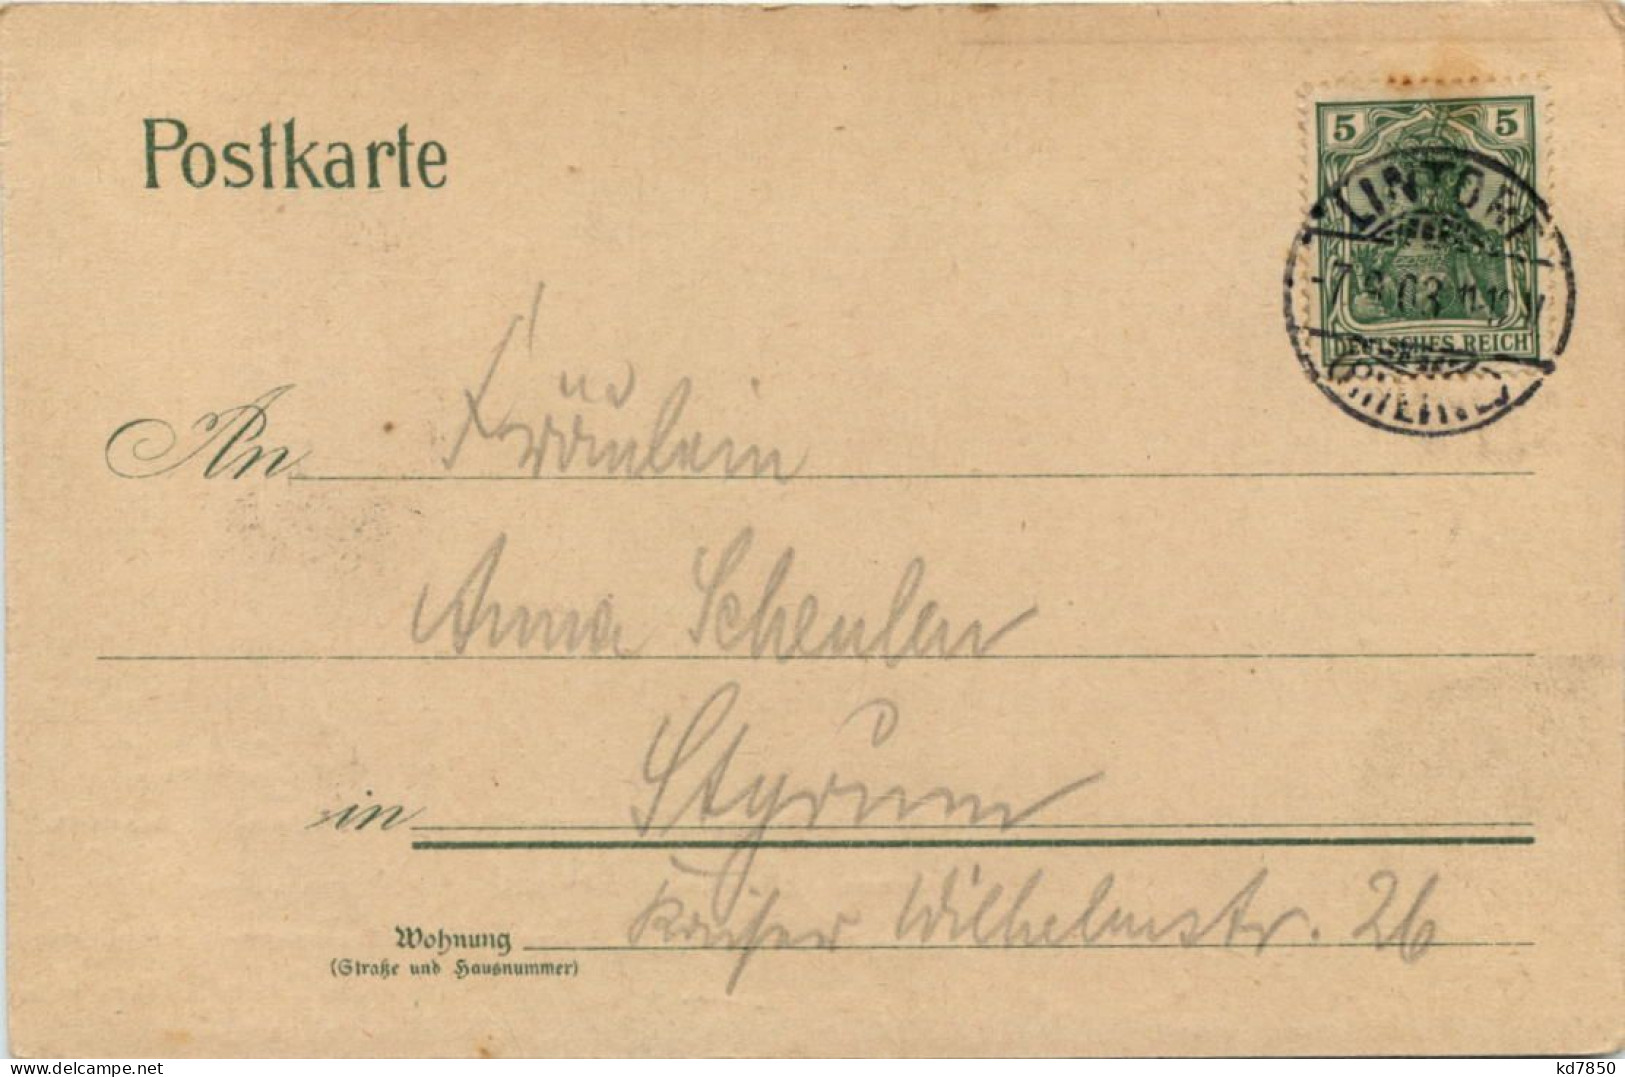 Postkarte
5 5
LINTORF
7.9.03 11-12 V
DEUTSCHES REICH
(RHEINL)
An Fräulein
Anna Scheulen
in Styrum
Wohnung Kaiser Wilhelmstr. 26
(Straße und Hausnummer)
delcampe.net
kd7850